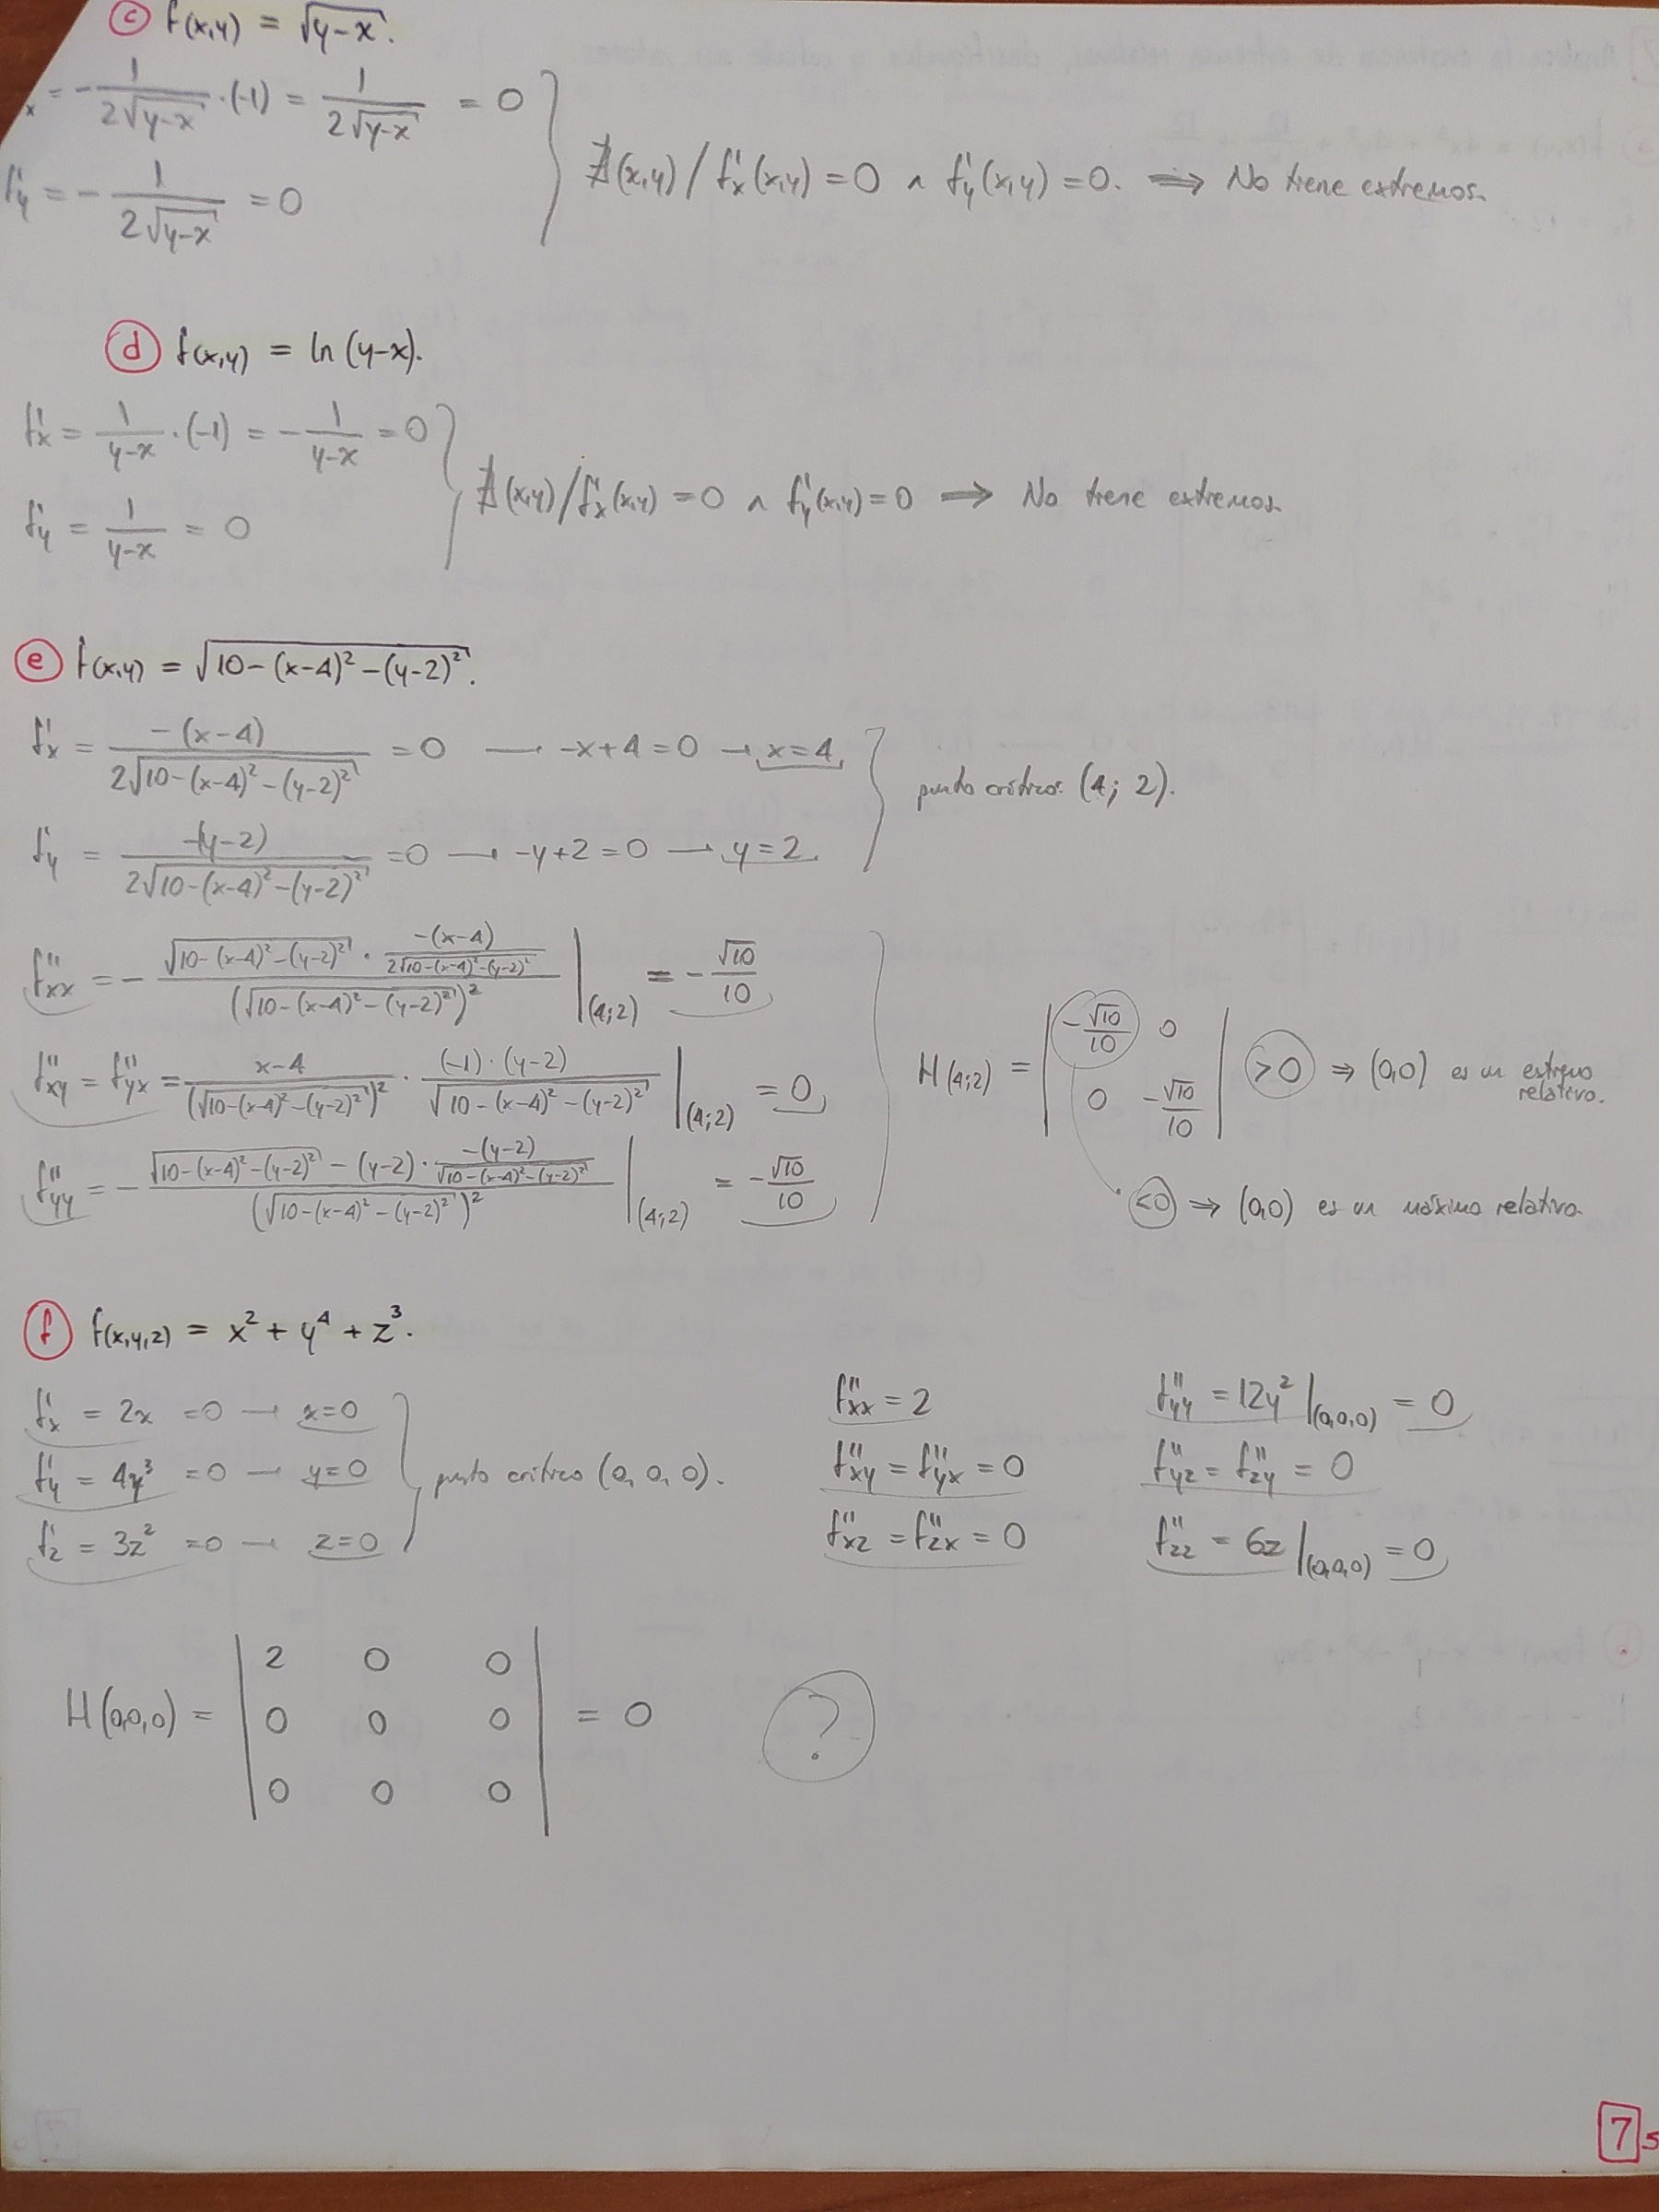 c f(x,y) = √(y-x).
x = - 1/(2√(y-x)) · (-1) = 1/(2√(y-x)) = 0
f'y = - 1/(2√(y-x)) = 0
∄(x,y) / f'x(x,y) = 0 ∧ f'y(x,y) = 0. ⟹ No tiene extremos.
d f(x,y) = ln (y-x).
f'x = 1/(y-x) · (-1) = - 1/(y-x) = 0
f'y = 1/(y-x) = 0
∄(x,y) / f'x(x,y) = 0 ∧ f'y(x,y) = 0 ⟹ No tiene extremos.
e f(x,y) = √(10-(x-4)²-(y-2)²).
f'x = -(x-4)/(2√(10-(x-4)²-(y-2)²)) = 0 → -x+4=0 → x=4
f'y = -(y-2)/(2√(10-(x-4)²-(y-2)²)) = 0 → -y+2=0 → y=2
punto crítico: (4; 2).
f''xx = - (√(10-(x-4)²-(y-2)²) · -(x-4)/(2√(10-(x-4)²-(y-2)²)))/(√(10-(x-4)²-(y-2)²))² |(4;2) = - √10/10
f''xy = f''yx = (x-4)/(√(10-(x-4)²-(y-2)²))² · (-1)·(y-2)/√(10-(x-4)²-(y-2)²) |(4;2) = 0
f''yy = - (√(10-(x-4)²-(y-2)²) - (y-2) · -(y-2)/√(10-(x-4)²-(y-2)²))/(√(10-(x-4)²-(y-2)²))² |(4;2) = - √10/10
H(4;2) = | -√10/10 0 |
| 0 -√10/10 | >0 ⇒ (0,0) es un extremo
relativo.
<0 ⇒ (0,0) es un máximo relativo.
f f(x,y,z) = x² + y⁴ + z³.
f'x = 2x = 0 → x=0
f'y = 4y³ = 0 → y=0
f'z = 3z² = 0 → z=0
punto crítico (0, 0, 0).
f''xx = 2
f''xy = f''yx = 0
f''xz = f''zx = 0
f''yy = 12y² |(0,0,0) = 0
f''yz = f''zy = 0
f''zz = 6z |(0,0,0) = 0
H(0,0,0) = | 2 0 0 |
| 0 0 0 | = 0 ?
| 0 0 0 |
7